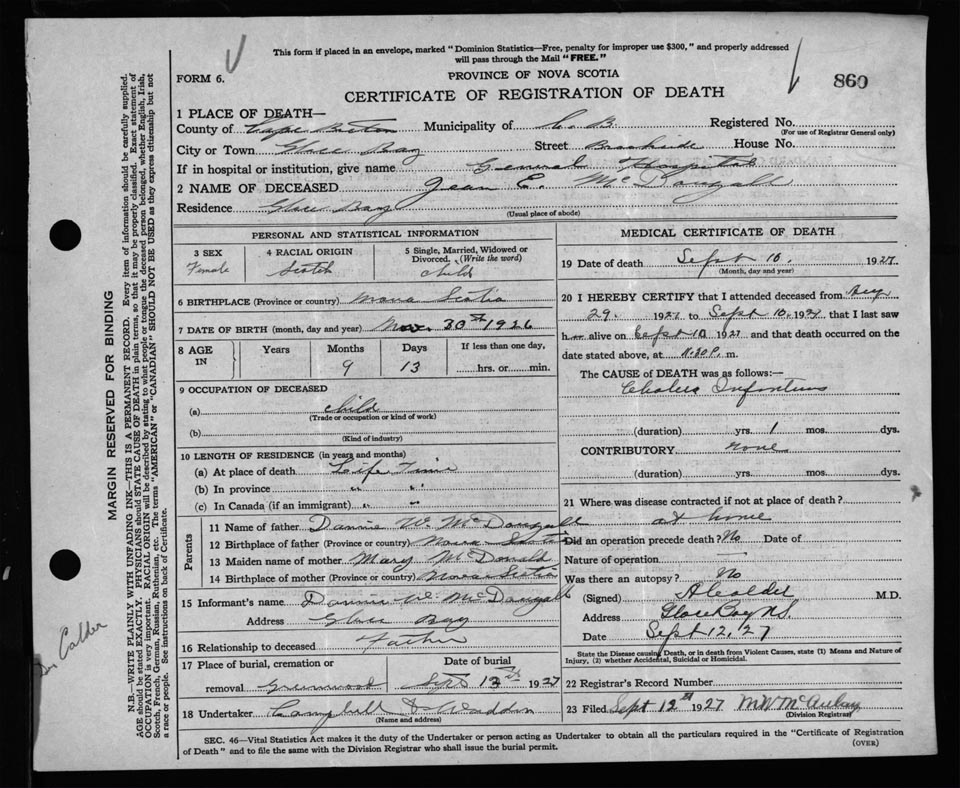 This form if placed in an envelope, marked "Dominion Statistics—Free, penalty for improper use $300," and properly addressed
will pass through the Mail "FREE."
FORM 6.
PROVINCE OF NOVA SCOTIA
860
CERTIFICATE OF REGISTRATION OF DEATH
1 PLACE OF DEATH—
County of Cape Breton Municipality of C. B. Registered No.
(For use of Registrar General only)
City or Town Glace Bay Street Brookside House No.
If in hospital or institution, give name General Hospital
2 NAME OF DECEASED Jean E. McDougall
Residence Glace Bay
(Usual place of abode)
PERSONAL AND STATISTICAL INFORMATION
3 SEX 4 RACIAL ORIGIN 5 Single, Married, Widowed or
Divorced. (Write the word)
Female Scotch child
6 BIRTHPLACE (Province or country) Nova Scotia
7 DATE OF BIRTH (month, day and year) Nov. 30th 1926
8 AGE IN Years Months Days If less than one day,
9 13 hrs. or min.
9 OCCUPATION OF DECEASED
(a) child
(Trade or occupation or kind of work)
(b)
(Kind of industry)
10 LENGTH OF RESIDENCE (in years and months)
(a) At place of death Life Time
(b) In province " "
(c) In Canada (if an immigrant) " "
Parents
11 Name of father Dannie W. McDougall
12 Birthplace of father (Province or country) Nova Scotia
13 Maiden name of mother Mary McDonald
14 Birthplace of mother (Province or country) Nova Scotia
15 Informant's name Dannie W. McDougall
Address Glace Bay
16 Relationship to deceased Father
17 Place of burial, cremation or Date of burial
removal Greenwood Sept 12th 1927
18 Undertaker Campbell & Waddin
(Name and address)
MEDICAL CERTIFICATE OF DEATH
19 Date of death Sept 10, 1927
(Month, day and year)
20 I HEREBY CERTIFY that I attended deceased from Aug
29. 1927 to Sept 10, 1927 that I last saw
h alive on Sept 10 1927 and that death occurred on the
date stated above, at 11.30 P. m.
The CAUSE of DEATH was as follows:—
Cholera Infantum
(duration) yrs. 1 mos. dys.
CONTRIBUTORY none
(duration) yrs. mos. dys.
21 Where was disease contracted if not at place of death?
at home
Did an operation precede death? No Date of
Nature of operation —
Was there an autopsy? No
(Signed) A Calder M.D.
Address Glace Bay N.S.
Date Sept 12, 27
State the Disease causing Death, or in death from Violent Causes, state (1) Means and Nature of
Injury, (2) whether Accidental, Suicidal or Homicidal.
22 Registrar's Record Number
23 Filed Sept 12th 1927 M W McAulay
(Division Registrar)
SEC. 46—Vital Statistics Act makes it the duty of the Undertaker or person acting as Undertaker to obtain all the particulars required in the "Certificate of Registration
of Death" and to file the same with the Division Registrar who shall issue the burial permit.
(OVER)
MARGIN RESERVED FOR BINDING
N.B.—WRITE PLAINLY WITH UNFADING INK—THIS IS A PERMANENT RECORD. Every item of information should be carefully supplied.
AGE should be stated EXACTLY. PHYSICIANS should STATE CAUSE OF DEATH in plain terms, so that it may be properly classified. Exact statement of
OCCUPATION is very important. RACIAL ORIGIN will be described by stating to what people or tongue the deceased person belonged, whether English, Irish,
Scotch, French, German, Russian, Ruthenian, etc. The terms "AMERICAN" or "CANADIAN" SHOULD NOT BE USED as they express citizenship but not
a race or people. See instructions on back of Certificate.
Dr. Calder